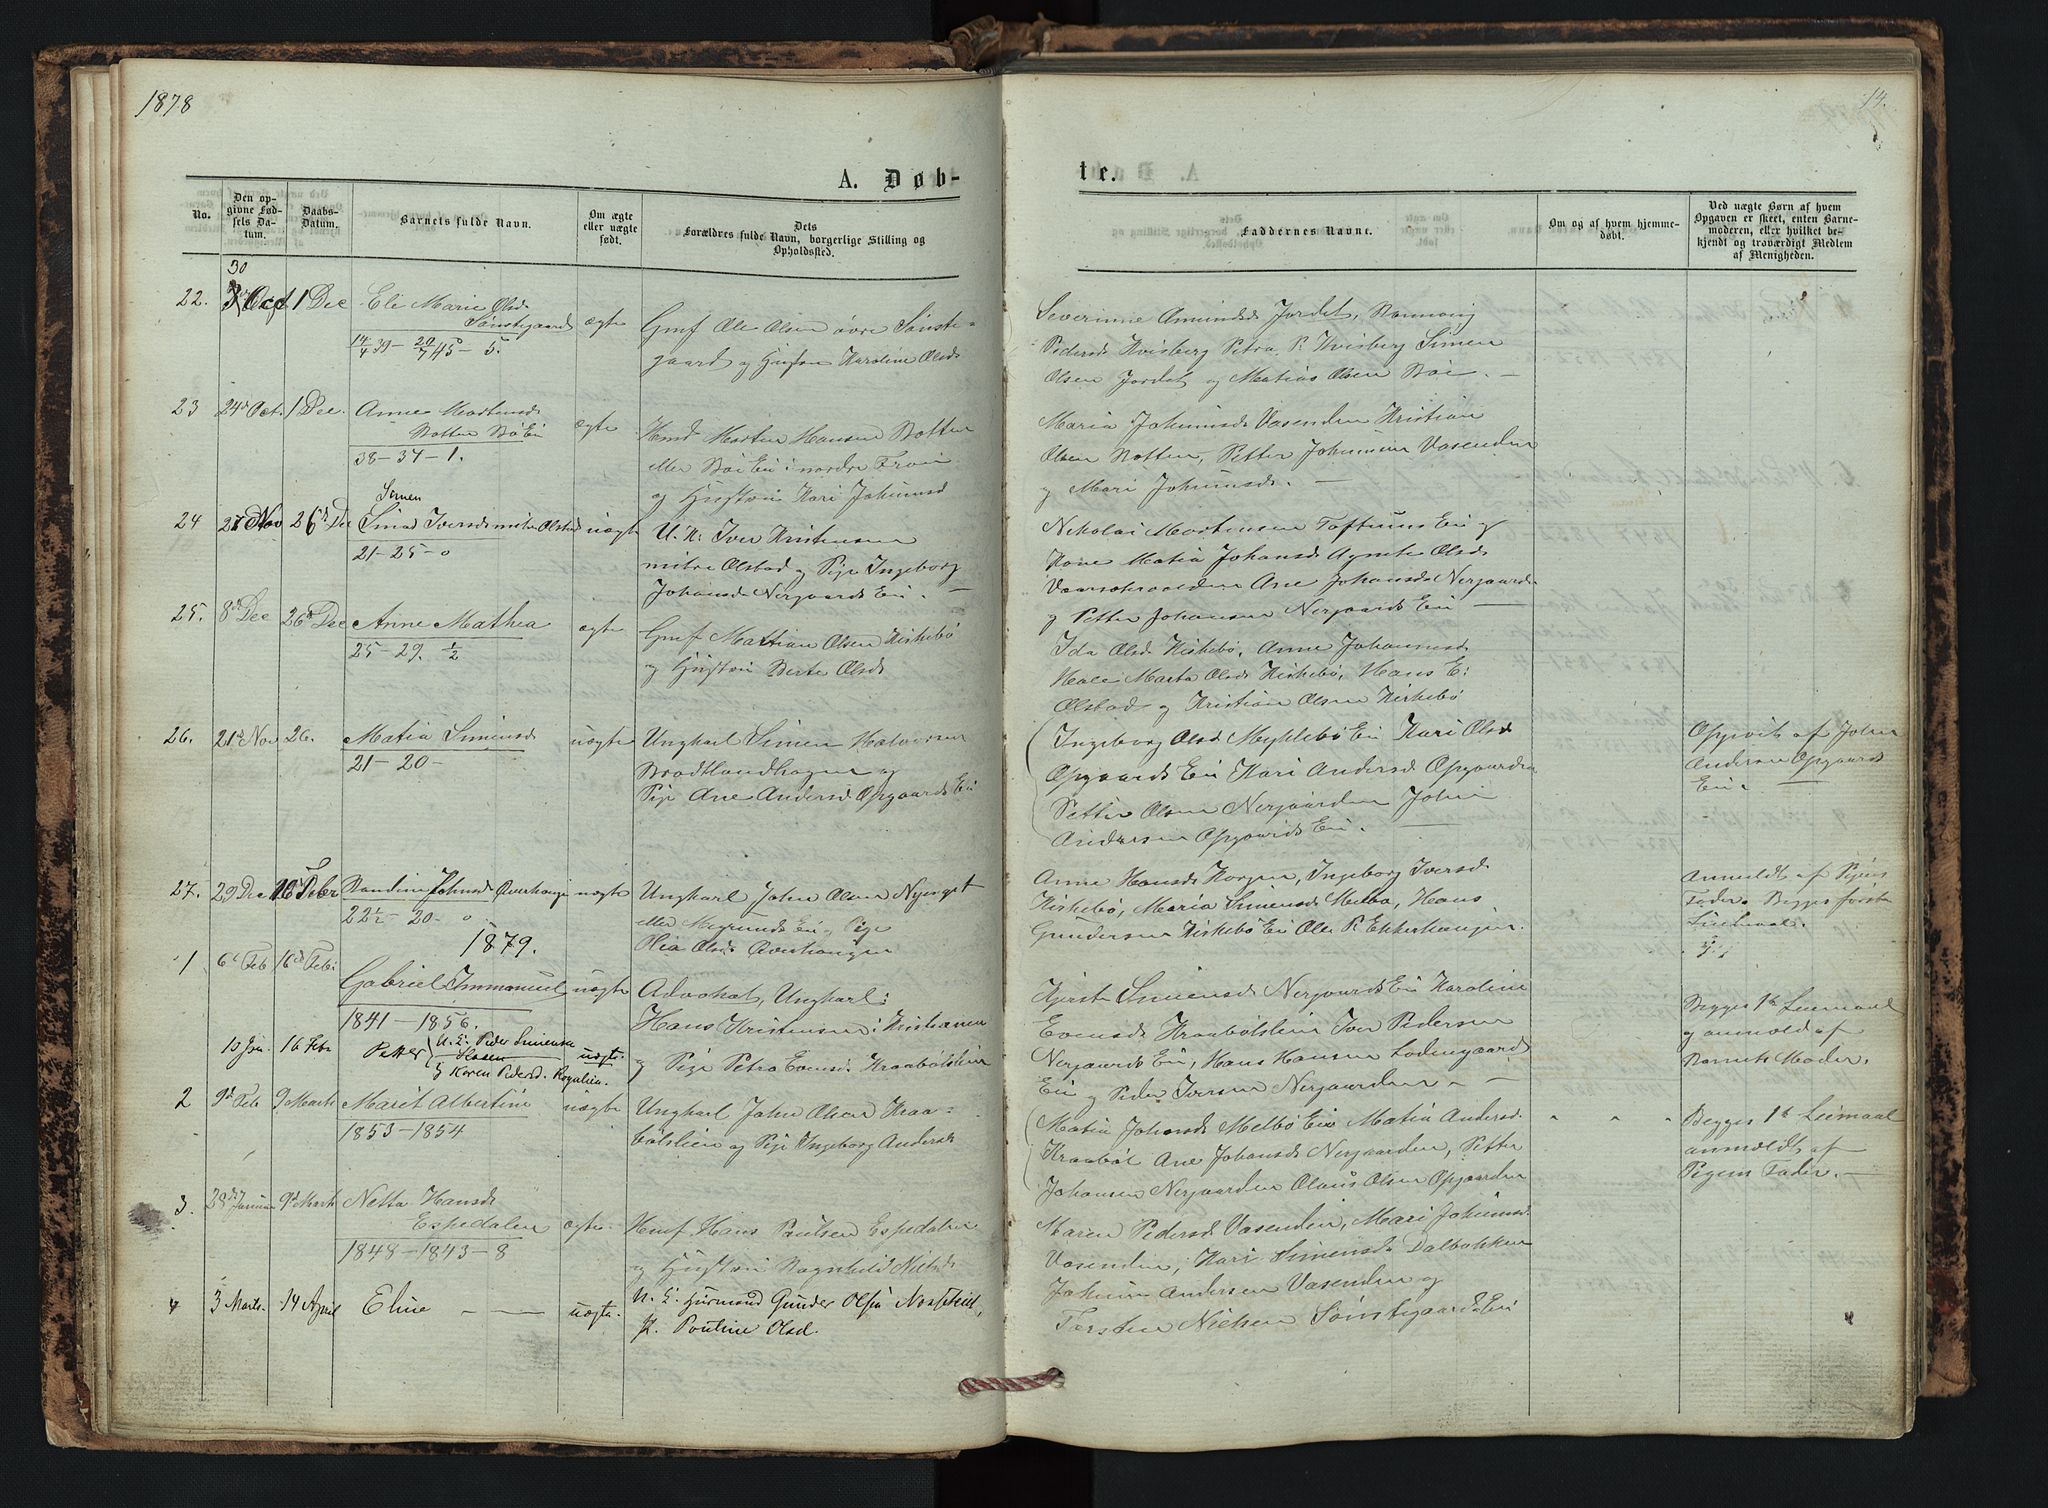 1878
14.
A. Døb-
te.
No.
Den op-
givne Fød-
sels Da-
tum.
Daabs-
Datum.
Barnets fulde Navn.
Om ægte
eller uægte
født.
Dets
Forældres fulde Navn, borgerlige Stilling og
Opholdssted.
Faddernes Navne.
Om og af hvem hjemme-
døbt.
Ved uægte Børn af hvem
Opgaven er skeet, enten Barne-
moderen, eller hvilket be-
kjendt og troværdigt Medlem
af Menigheden.
30
22. Oct 1 Dec Eli Marie Olsd.
Sønstegaard ægte
14/4 39 – 20/7 45 – 5.
Gmf Ole Olsen øvre Sønste-
gaard og Hustru Karoline Olsd.
Severinne Amundsd. Jordet, Ronnaug
Pedersd. Kvisberg Petra P. Kvisberg Simen
Olsen Jordet og Matias Olsen Bøe. –
23 24de Oct. 1 Dec. Anne Mortensd.
Botten Bø Ei ægte
38 – 34 – 1.
Hmd Morten Hansen Botten
eller Bøe Ei i nordre Fron
og Hustru Kari Johannsd
Maria Johannsd. Vasenden Kristian
Olsen Botten, Petter Johannsen Vasenden
og Mari Johannsd. –
Simen
24 27 Nov 26de Dec Sina Iversd. mitre Olstad uægte
21 – 25 – 0
U. K. Iver Kristensen
mitre Olstad og Pige Ingeborg
Johansd. Nergaards Ei. –
Nikolai Mortensen Toftuns Ei og
Kone Matia Johansd. Agnete Olsd.
Ane Johansd. Nergaarden
og Petter Johansen Nergaards Ei –
25. 8de Dec 26de Dec Anne Mathea ægte
25 – 29. 1/2
Gmf Mathian Olsen Kirkebø
og Hustru Berte Olsd.
Ida Olsd. Kirkebø, Anne Johannsd.
Hole Marta Olsd. Kirkebø, Hans E.
Olstad og Kristian Olsen Kirkebø
26. 21de Nov 26. Matia Simensd. uægte
21 – 20 –
Ungkarl Simen Halvorsen
Brodtlandhagen og
Pige Ane Andersd. Opgaards Ei
Ingeborg Olsd. Myklebø Ei Kari Olsd.
Opgaards Ei Kari Andersd. Opgaarden
Petter Olsen Nergaarden Johan
Andersen Opgaards Ei. –
Opgivit af Johan
Andersen Opgaards
Ei. –
27. 29 Dec 16 Febr Randine Johnsd. Øverhaugen uægte
22 1/2 – 20 – 0
Ungkarl John Olsen Nyeget
eller Megrunds Ei og Pige
Olea Olsd. Øverhaugen
Anne Hansd. Korgen, Ingeborg Iversd.
Kirkebø, Maria Simensd. Melbø, Hans
Gundersen Kirkebø Ei Ole P. Ekkerhaugen.
Anmeldt af Pigens
Fader. Begges første
Leiemaal.
1879.
1 6te Feb 16de Feb. Gabriel Immanuel uægte
1841 – 1856.
Advokat, Ungkarl:
Hans Kristensen i Kristiania
og Pige Petra Evensd. Kraabølslien
Kjersti Simensd. Nergaards Ei Karoline
Evensd. Kraabølslien Iver Pedersen
Nergaards Ei, Hans Hansen Lodengaards
Ei og Peder Iversen Nergaarden. –
Begges 1ste Leiemaal
og anmeld af
Barnets Moder.
10 Jan. 16 Febr Petter U. K. Peder Simensen
Slaaen uægte.
& Karen Pedersd. Rogslien.
2 9de Feb 9 Marts Marit Albertine uægte
1853 – 1854
Ungkarl John Olsen Kraa-
bølslien og Pige Ingeborg Andersd.
Matia Johansd. Melbø Ei Matia Andersd.
Kraabøl Ane Johansd. Nergaarden, Petter
Johansen Nergaarden Olaus Olsen Opgaarden
" " "
Begges 1ste Leiemaal
anmeldt af
Pigens Fader. –
3. 28de Januar 9de Marts Netta Hansd.
Espedalen ægte
1848 – 1843 – 8
Hmf. Hans Poulsen Espedalen
og Hustru Ragnhild Nielsd.
Maren Pedersd. Vasenden, Mari Johannsd.
Vasenden, Kari Simensd. Dalbakken
Johan Andersen Vasenden og
Torsten Nielsen Sønstegaards Ei
4 3 Marts. 14 April Eline – – uægte.
U. K. Gunder Olsen
P. Pouline Olsd.